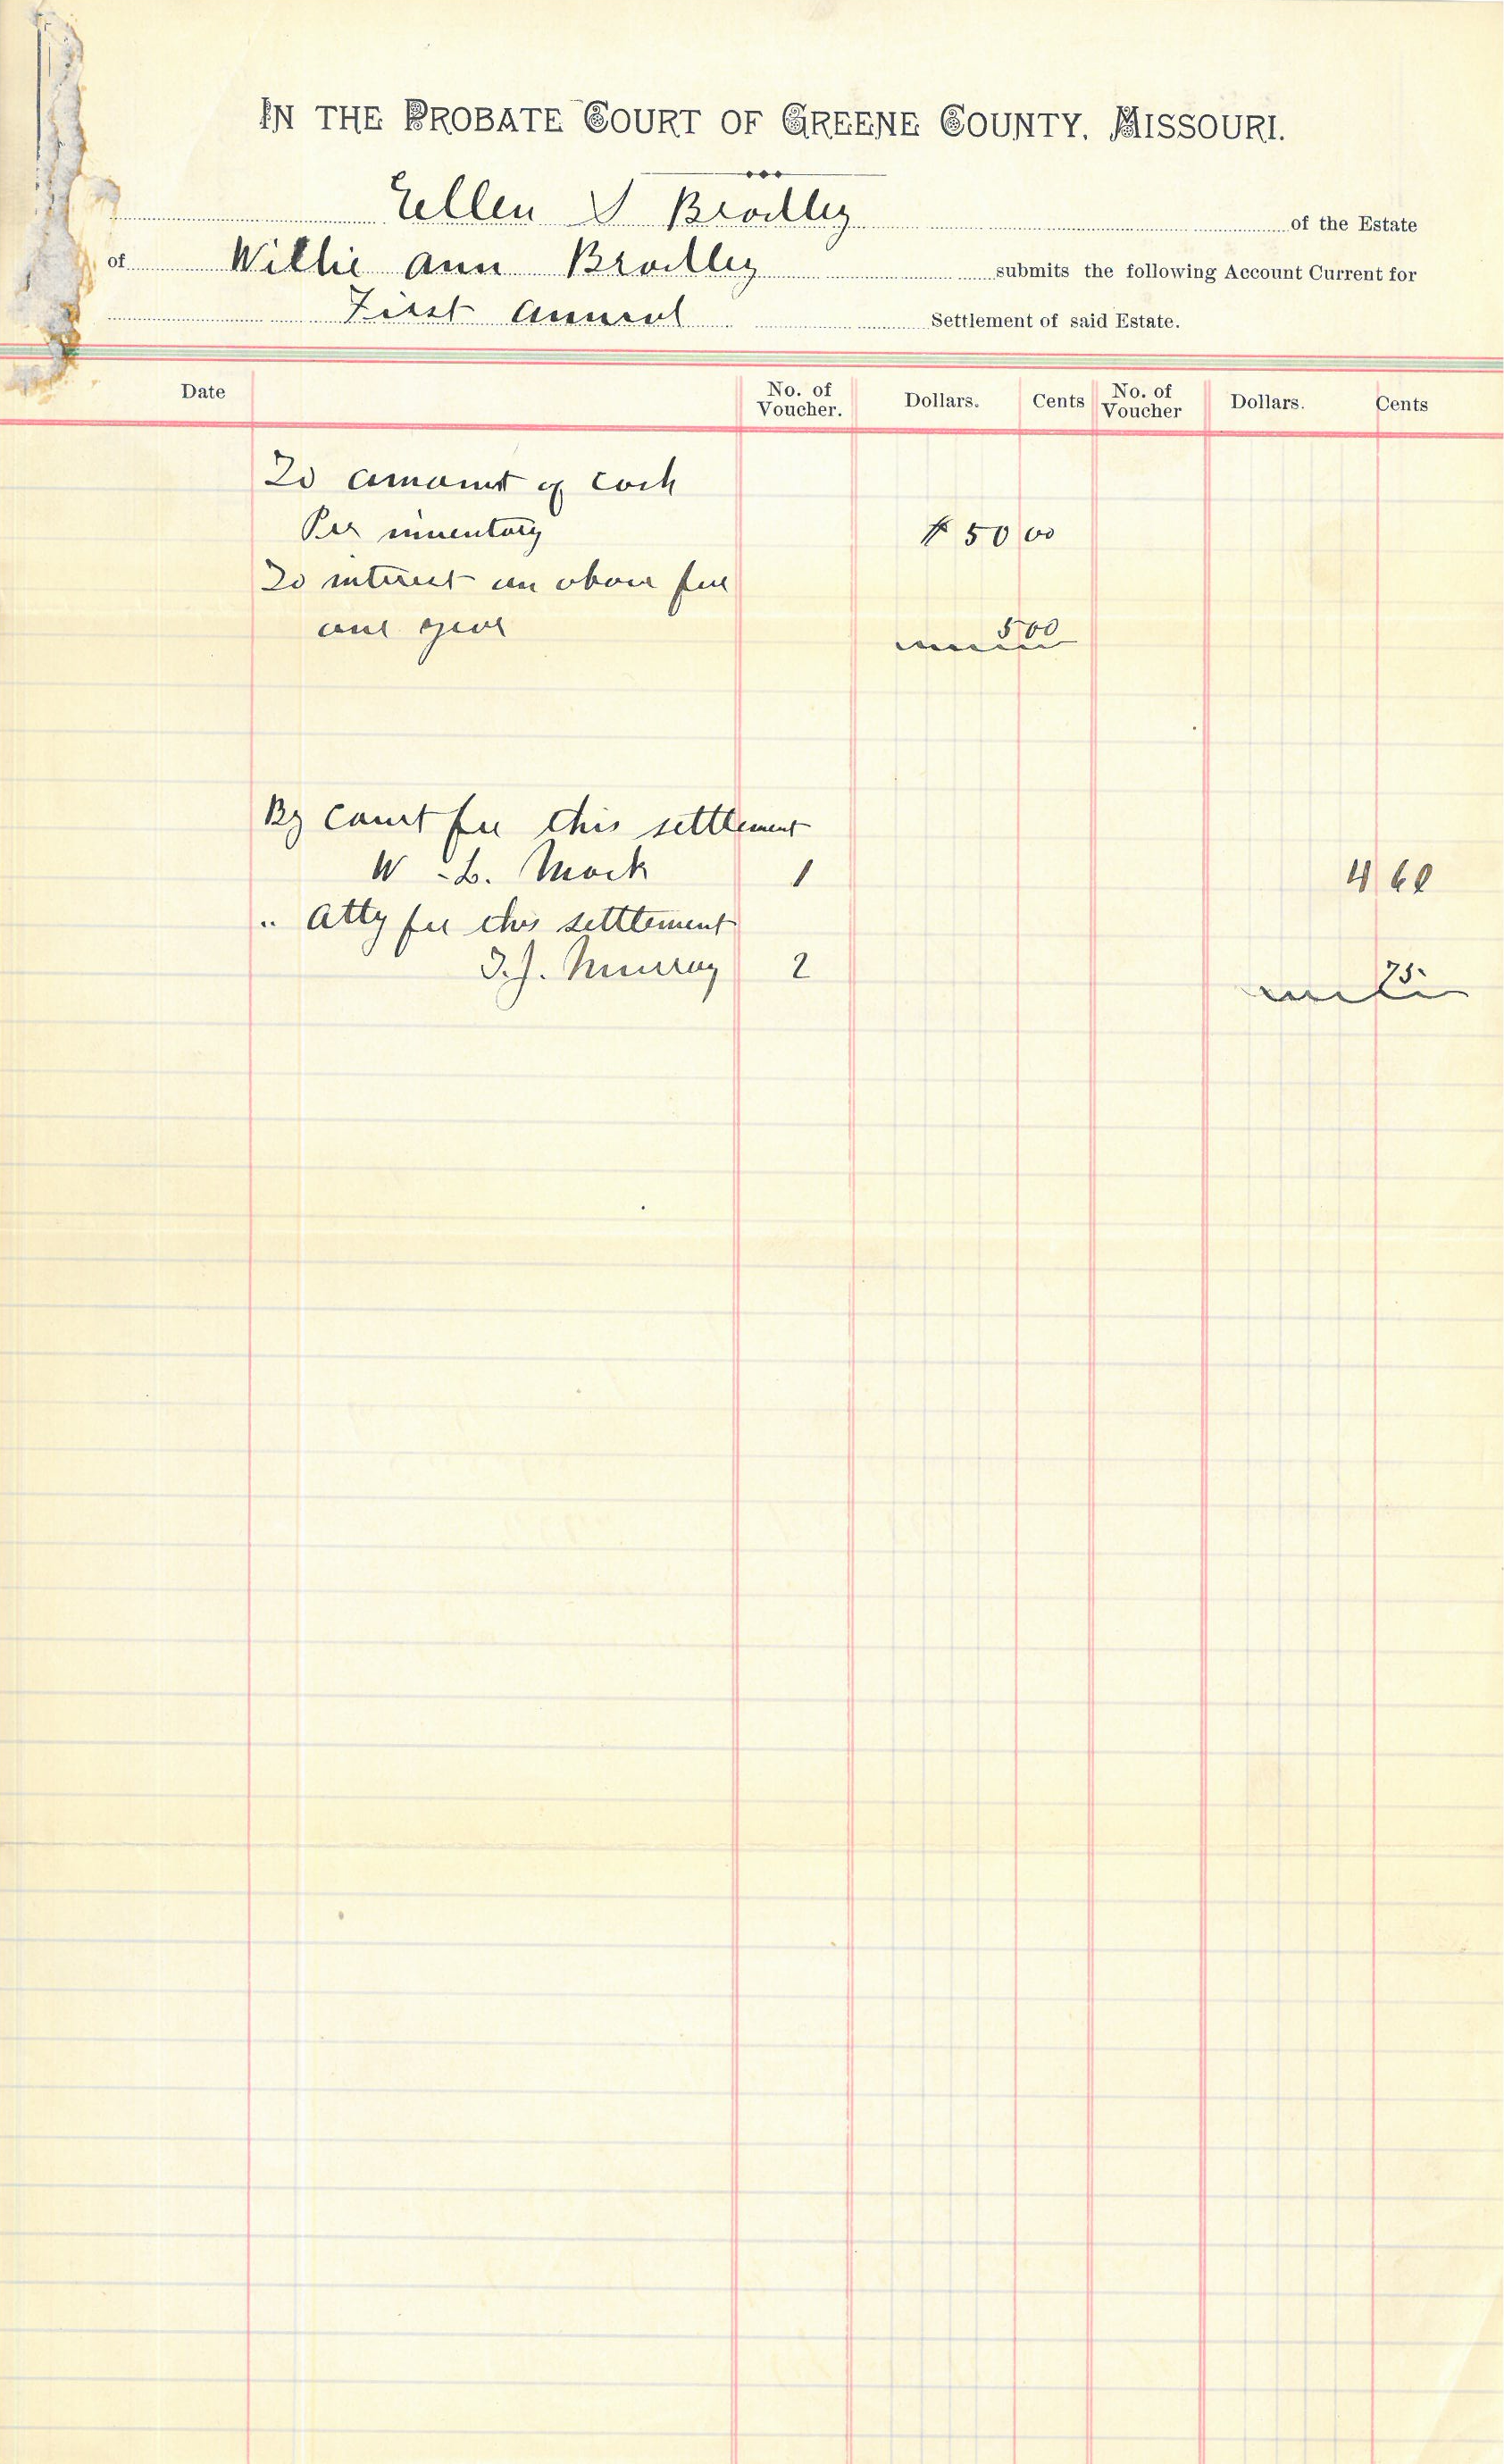 IN THE PROBATE COURT OF GREENE COUNTY, MISSOURI.
Ellen S Bradley of the Estate
of Willie Ann Bradley submits the following Account Current for
First Annual Settlement of said Estate.
Date No. of Voucher. Dollars. Cents No. of Voucher Dollars. Cents
To amount of cash
Per inventory $ 50 00
To interest on above for
one year 5 00
By Court fee this settlement
W. L. Mack 1 4 60
" Atty fee this settlement
T. J. Murray 2 75